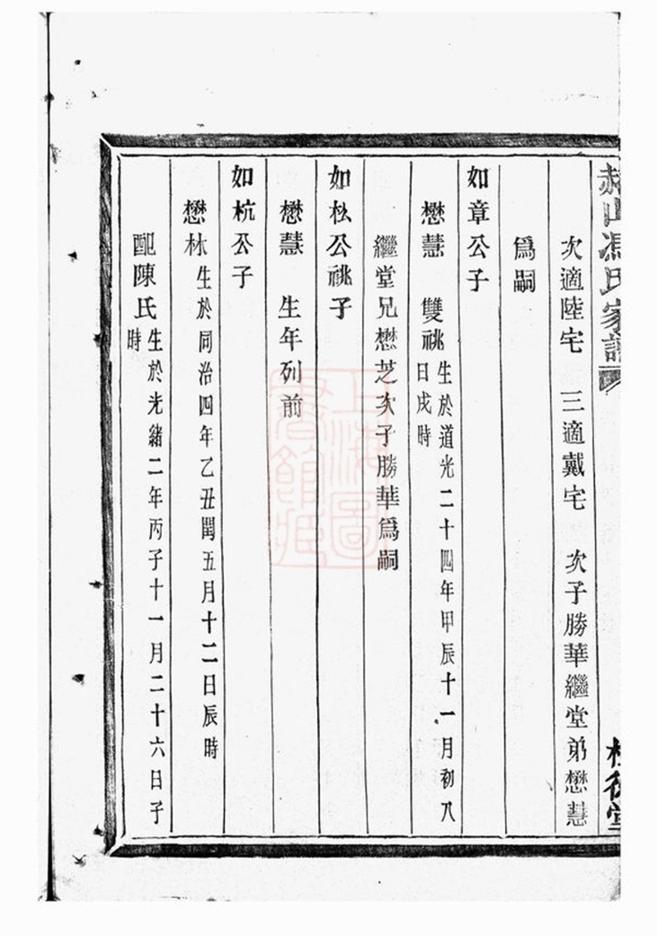 馮氏家譜
次適陸宅 三適戴宅 次子勝華繼堂弟懋慧
爲嗣
如章公子
懋慧 雙祧 生於道光二十四年甲辰十一月初八
日戌時
繼堂兄懋芝次子勝華爲嗣
如松公祧子
懋慧 生年列前
如杭公子
懋林 生於同治四年乙丑閏五月十二日辰時
配陳氏 生於光緒二年丙子十一月二十六日子
時
上海圖
書館藏